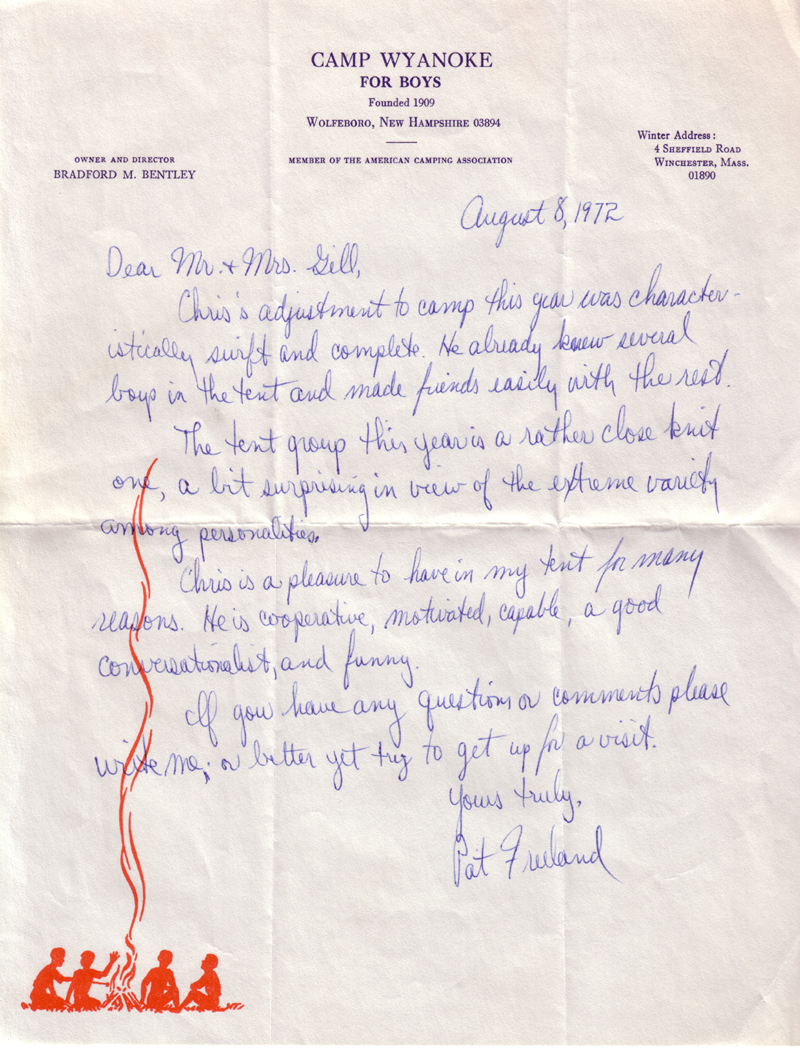 CAMP WYANOKE
FOR BOYS
Founded 1909
WOLFEBORO, NEW HAMPSHIRE 03894
MEMBER OF THE AMERICAN CAMPING ASSOCIATION
OWNER AND DIRECTOR
BRADFORD M. BENTLEY
Winter Address:
4 SHEFFIELD ROAD
WINCHESTER, MASS.
01890
August 8, 1972
Dear Mr. + Mrs. Gill,
Chris's adjustment to camp this year was character-
istically swift and complete. He already knew several
boys in the tent and made friends easily with the rest.
The tent group this year is a rather close knit
one, a bit surprising in view of the extreme variety
among personalities.
Chris is a pleasure to have in my tent for many
reasons. He is cooperative, motivated, capable, a good
conversationalist, and funny.
If you have any questions or comments please
write me; or better yet try to get up for a visit.
Yours truly,
Pat Freeland